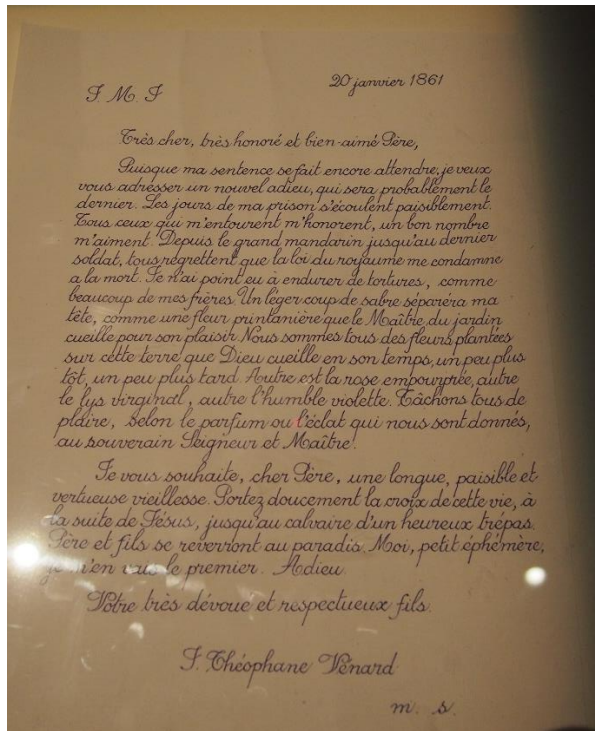 20 janvier 1861
J. M. J
Très cher, très honoré et bien-aimé Père,
Puisque ma sentence se fait encore attendre, je veux
vous adresser un nouvel adieu, qui sera probablement le
dernier. Les jours de ma prison s'écoulent paisiblement.
Tous ceux qui m'entourent m'honorent, un bon nombre
m'aiment. Depuis le grand mandarin jusqu'au dernier
soldat, tous régrettent que la loi du royaume me condamne
a la mort. Je n'ai point eu à endurer de tortures, comme
beaucoup de mes frères. Un léger coup de sabre séparéra ma
tête, comme une fleur printanière que le Maître du jardin
cueille pour son plaisir. Nous sommes tous des fleurs plantées
sur cette terre que Dieu cueille en son temps, un peu plus
tôt, un peu plus tard. Autre est la rose empourprée, autre
le lys virginal, autre l'humble violette. Tâchons tous de
plaire, selon le parfum ou l'éclat qui nous sont donnés,
au souverain Seigneur et Maître.
Je vous souhaite, cher Père, une longue, paisible et
vertueuse vieillesse. Portez doucement la croix de cette vie, à
la suite de Jésus, jusqu'au calvaire d'un heureux trépas.
Père et fils se reverront au paradis. Moi, petit éphémère,
je m'en vais le premier. Adieu.
Votre très dévoué et respectueux fils.
J. Théophane Vénard
m. s.